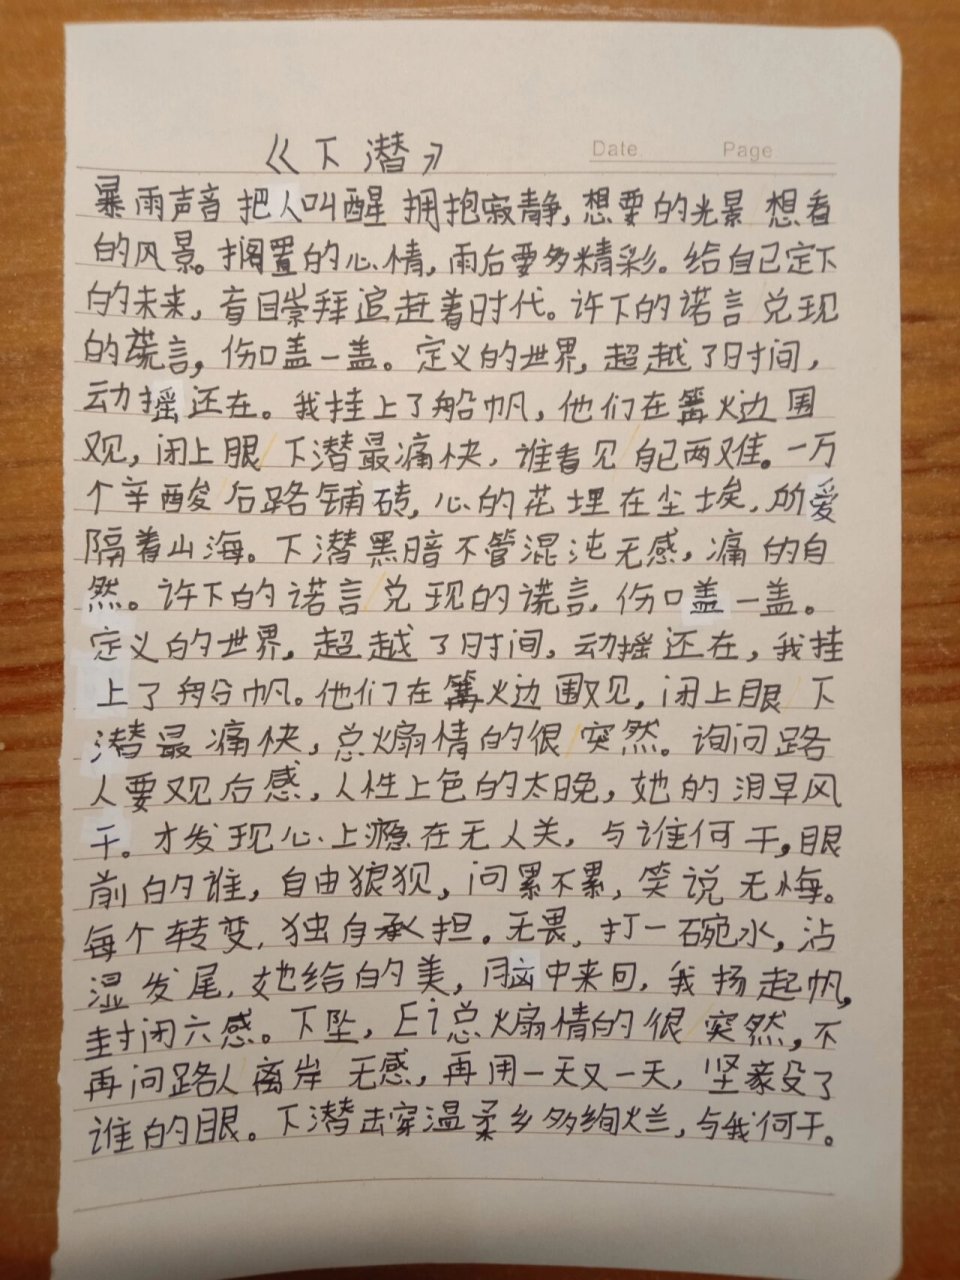 《下潜》
Date Page
暴雨声音 把人叫醒 拥抱寂静,想要的光景 想看
的风景。搁置的心情,雨后要多精彩。给自己定下
的未来,盲目崇拜追赶着时代。许下的诺言 兑现
的谎言,伤口盖一盖。定义的世界,超越了时间,
动摇还在。我挂上了船帆,他们在篝火边围
观,闭上眼 下潜最痛快,谁看见 自己两难。一万
个辛酸 后路铺砖,心的花埋在尘埃,所爱
隔着山海。下潜黑暗不管混沌无感,痛的自
然。许下的诺言 兑现的谎言,伤口盖一盖。
定义的世界,超越了时间,动摇还在,我挂
上了船帆。他们在篝火边围观,闭上眼 下
潜最痛快,总煽情的很 突然。询问路
人要观后感,人性上色的太晚,她的泪早风
干。才发现心上瘾在无人关,与谁何干,眼
前的谁,自由狼狈,问累不累,笑说无悔。
每个转变,独自承担。无畏,打一碗水,沾
湿发尾,她给的美,脑中来回,我扬起帆,
封闭六感。下坠,Ei总煽情的很 突然,不
再问路人 离岸 无感,再用一天又一天,坚豪没了
谁的眼。下潜击穿温柔乡多绚烂,与我何干。